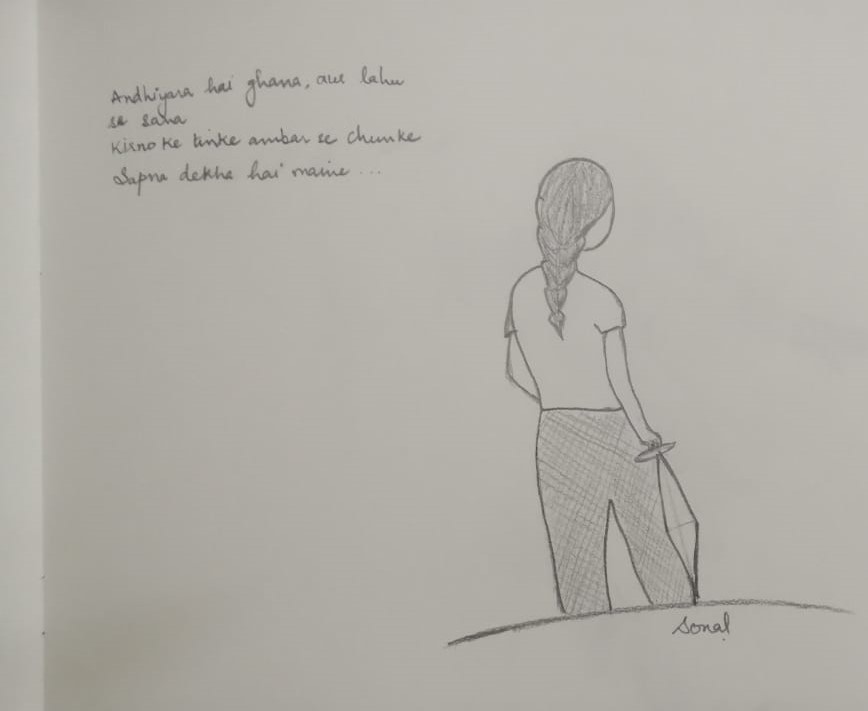 Andhiyara hai ghana, aur lahu
se sana
Kirno ke tinke ambar se chunke
Sapna dekha hai maine ...
Sonal